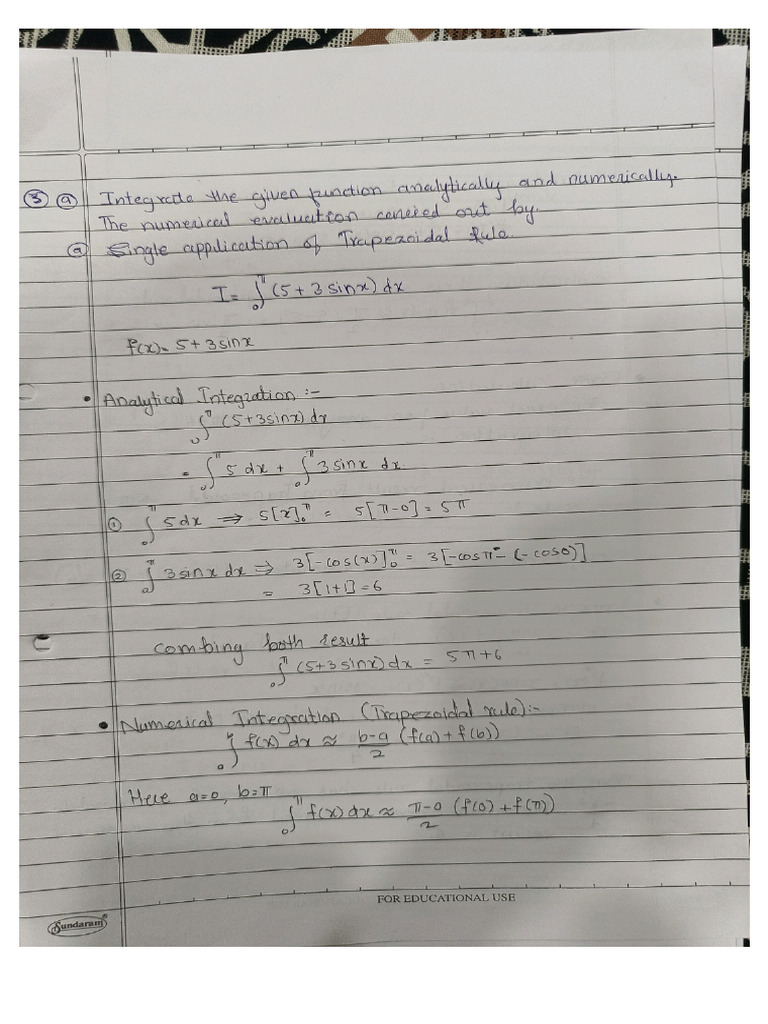 ③ ⓐ Integrate the given function analytically and numerically.
The numerical evaluation carried out by.
ⓐ Single application of Trapezoidal Rule
I = ∫₀^π (5 + 3 sinx) dx
f(x) = 5 + 3 sinx
• Analytical Integration :-
∫₀^π (5+3sinx) dx
= ∫₀^π 5 dx + ∫₀^π 3 sinx dx.
① ∫₀^π 5dx ⇒ 5[x]₀^π = 5[π-0] = 5π
② ∫₀^π 3 sinx dx ⇒ 3[-cos(x)]₀^π = 3[-cosπ - (-cos0)]
= 3[1+1] = 6
combing both result
∫₀^π (5+3 sinx) dx = 5π+6
• Numerical Integration (Trapezoidal rule):-
f(x) dx ≈ b-a/2 (f(a) + f(b))
Here a=0, b=π
∫₀^π f(x) dx ≈ π-0/2 (f(0) + f(π))
FOR EDUCATIONAL USE
Sundaram®